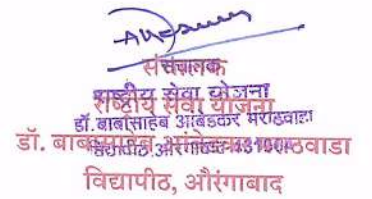 संचालक
राष्ट्रीय सेवा योजना
डॉ. बाबासाहेब आंबेडकर मराठवाडा
विद्यापीठ, औरंगाबाद
संचालक
राष्ट्रीय सेवा योजना
डॉ. बाबासाहेब आंबेडकर मराठवाडा
विद्यापीठ, औरंगाबाद-431004